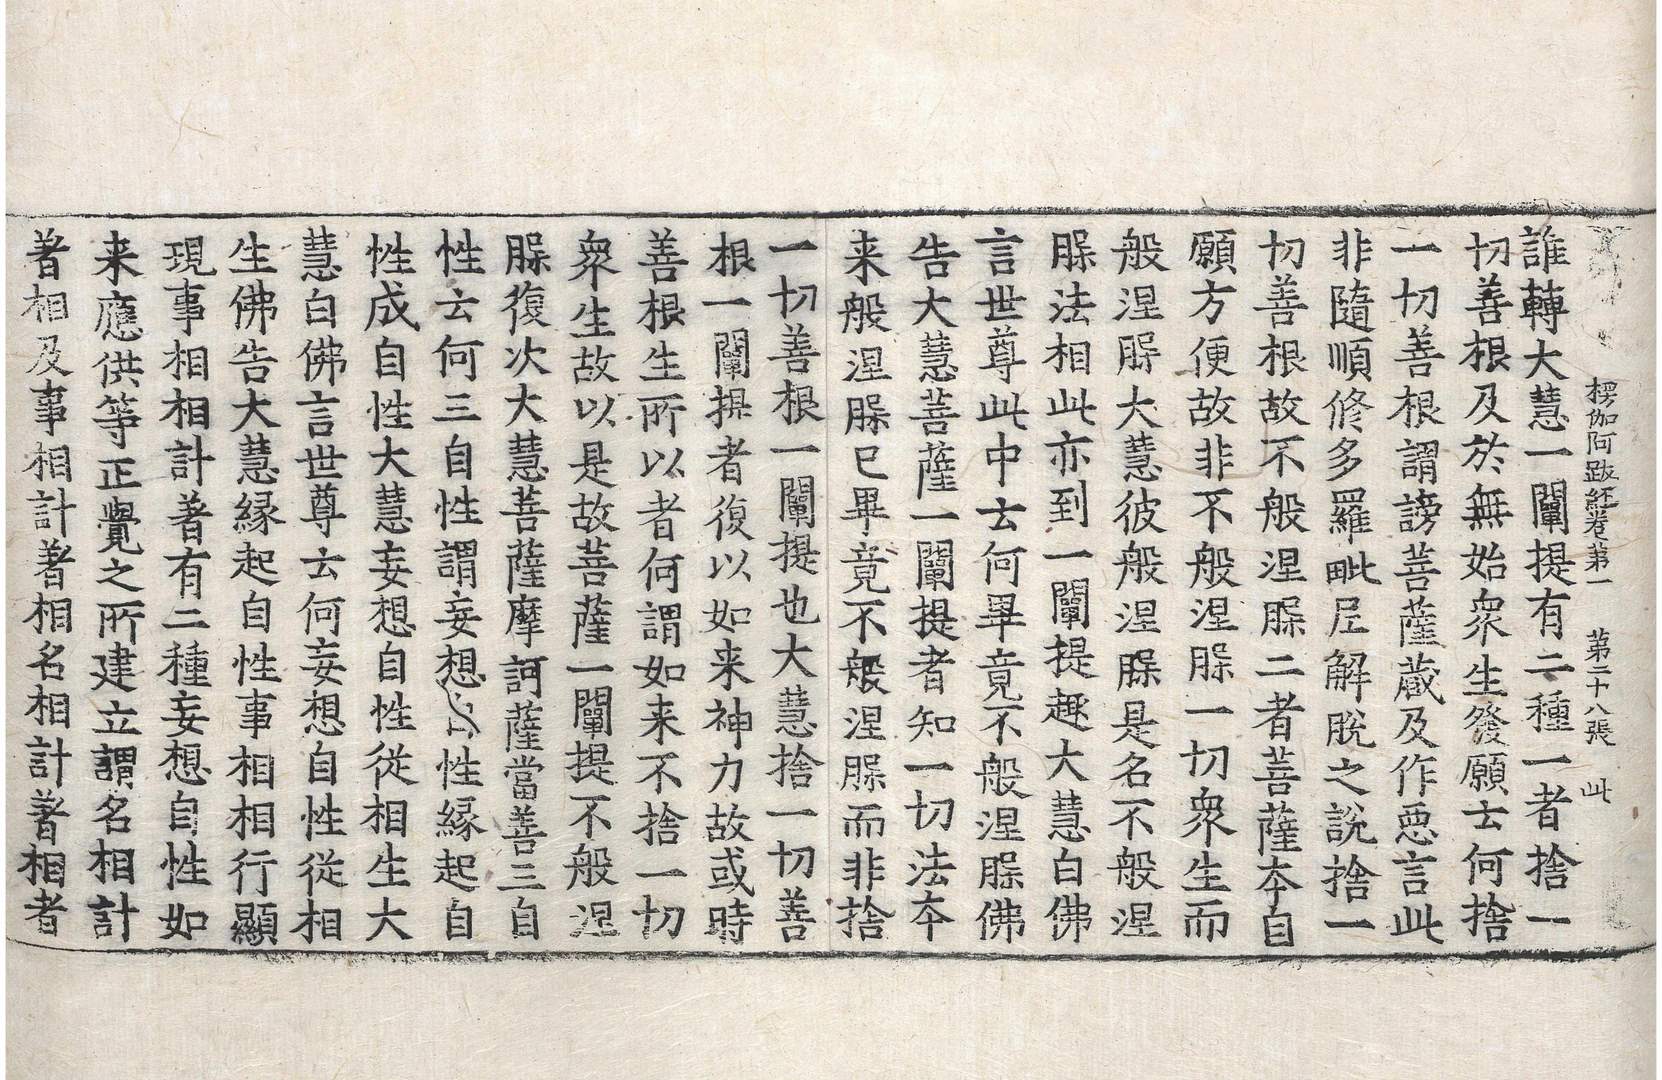 楞伽阿跋経卷第一 第二十八張 此
誰轉大慧一闡提有二種一者捨一
切善根及於無始衆生發願云何捨
一切善根謂謗菩薩蔵及作惡言此
非隨順修多羅毗尼解脫之說捨一
切善根故不般涅槃二者菩薩夲自
願方便故非不般涅槃一切衆生而
般涅槃大慧彼般涅槃是名不般涅
槃法相此亦到一闡提趣大慧白佛
言世尊此中云何畢竟不般涅槃佛
告大慧菩薩一闡提者知一切法夲
来般涅槃已畢竟不般涅槃而非捨
一切善根一闡提也大慧捨一切善
根一闡提者復以如来神力故或時
善根生所以者何謂如来不捨一切
衆生故以是故菩薩一闡提不般涅
槃復次大慧菩薩摩訶薩當善三自
性云何三自性謂妄想自性縁起自
性成自性大慧妄想自性從相生大
慧白佛言世尊云何妄想自性從相
生佛告大慧縁起自性事相相行顯
現事相相計著有二種妄想自性如
来應供等正覺之所建立謂名相計
著相及事相計著相名相計著相者